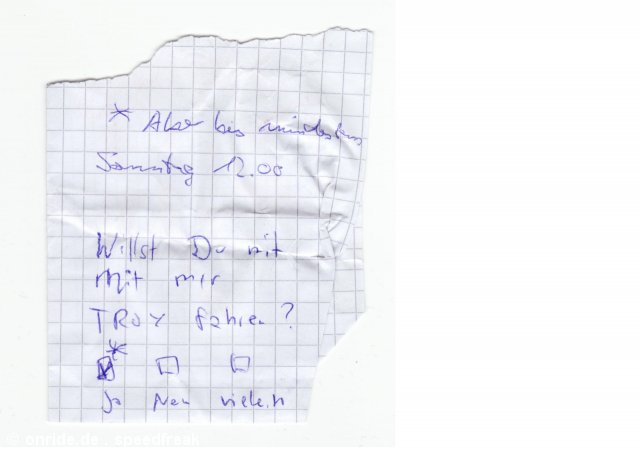 * Aber bis mindestens
Sonntag 12.00
Willst Du mit
mit mir
TROY fahren?
*
Ja Nein vielein
© onride.de . speedfreak